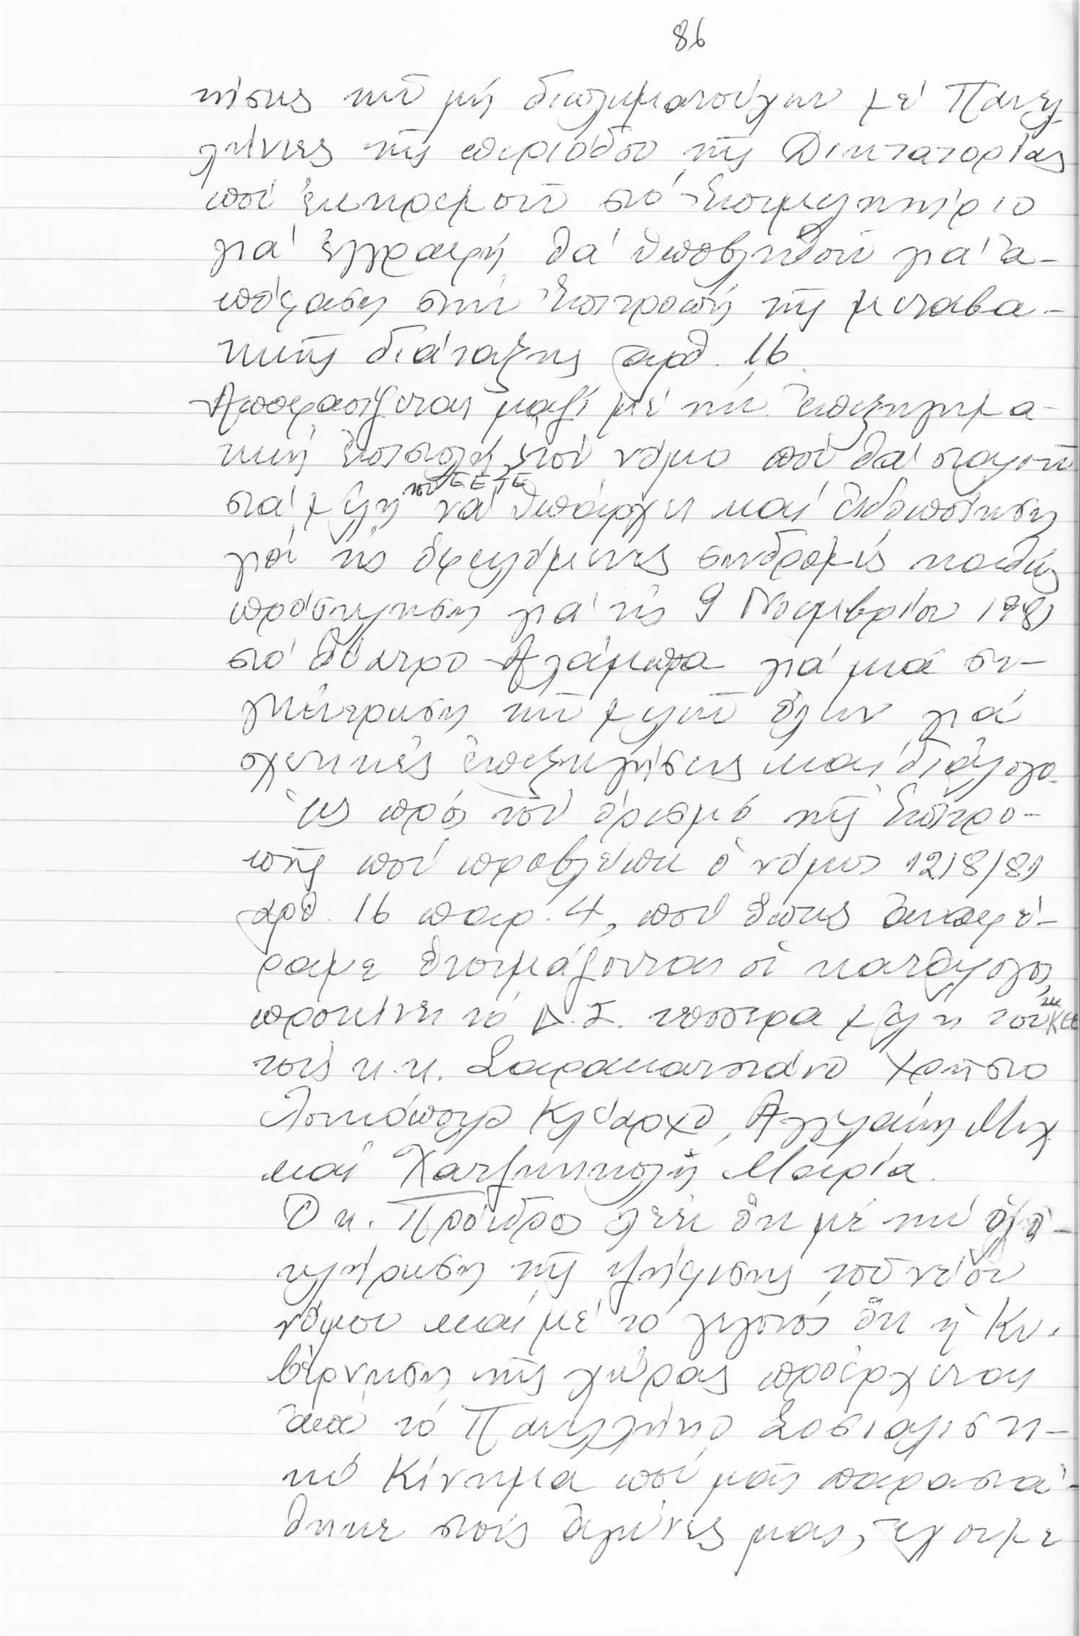 86
τήσεις τῶν μή διπλωματούχων μέ Πανελ-
λήνιες τῆς περιόδου τῆς Δικτατορίας
πού ἐκκρεμοῦν στό Ἐπιμελητήριο
γιά ἐγγραφή θά ὑποβληθοῦν γιά ἀ-
πόφαση στήν Ἐπιτροπή τῆς μεταβα-
τικῆς διάταξης άρθ. 16.
Ἀποφασίζεται μαζί μέ τήν ἐπεξηγημα-
τική ἐπιστολή τοῦ νόμο πού θά σταλοῦν
στά μέλη τοῦ ΕΕΤΕ νά ὑπάρχει καί εἰδοποίηση
γιά τίς ὀφειλόμενες συνδρομές καθώς
πρόσκληση γιά τίς 9 Νοεμβρίου 1981
στό θέατρο Ἀλάμπρα γιά μιά συ-
γκέντρωση τῶν μελῶν ὅλων γιά
σχετικές ἐπεξηγήσεις καί διάλογο.
Ὡς πρός τόν ὁρισμό τῆς Ἐπιτρο-
πῆς πού προβλέπει ὁ νόμος 1218/81
άρθ. 16 παρ. 4, πού ὅπως ἀναφέ-
ραμε ἑτοιμάζονται οἱ κατάλογοι,
προτείνει τό Δ.Σ. τέσσερα μέλη τοῦ ΚΕΕ
τούς κ.κ. Σαρακατσιάνο Χρῆστο
Λουκόπουλο Κλέαρχο, Ἀγγελάκη Μιχ
καί Χατζηνικολῆ Μαρία.
Ὁ κ. Πρόεδρος λέει ὅτι μέ τήν ὁλο-
κλήρωση τῆς ψήφισης τοῦ νέου
νόμου καί μέ τό γεγονός ὅτι ἡ Κυ-
βέρνηση τῆς χώρας προέρχεται
ἀπό τό Πανελλήνιο Σοσιαλιστι-
κό Κίνημα πού μᾶς παραστά-
θηκε στούς ἀγῶνες μας, ἔχουμε